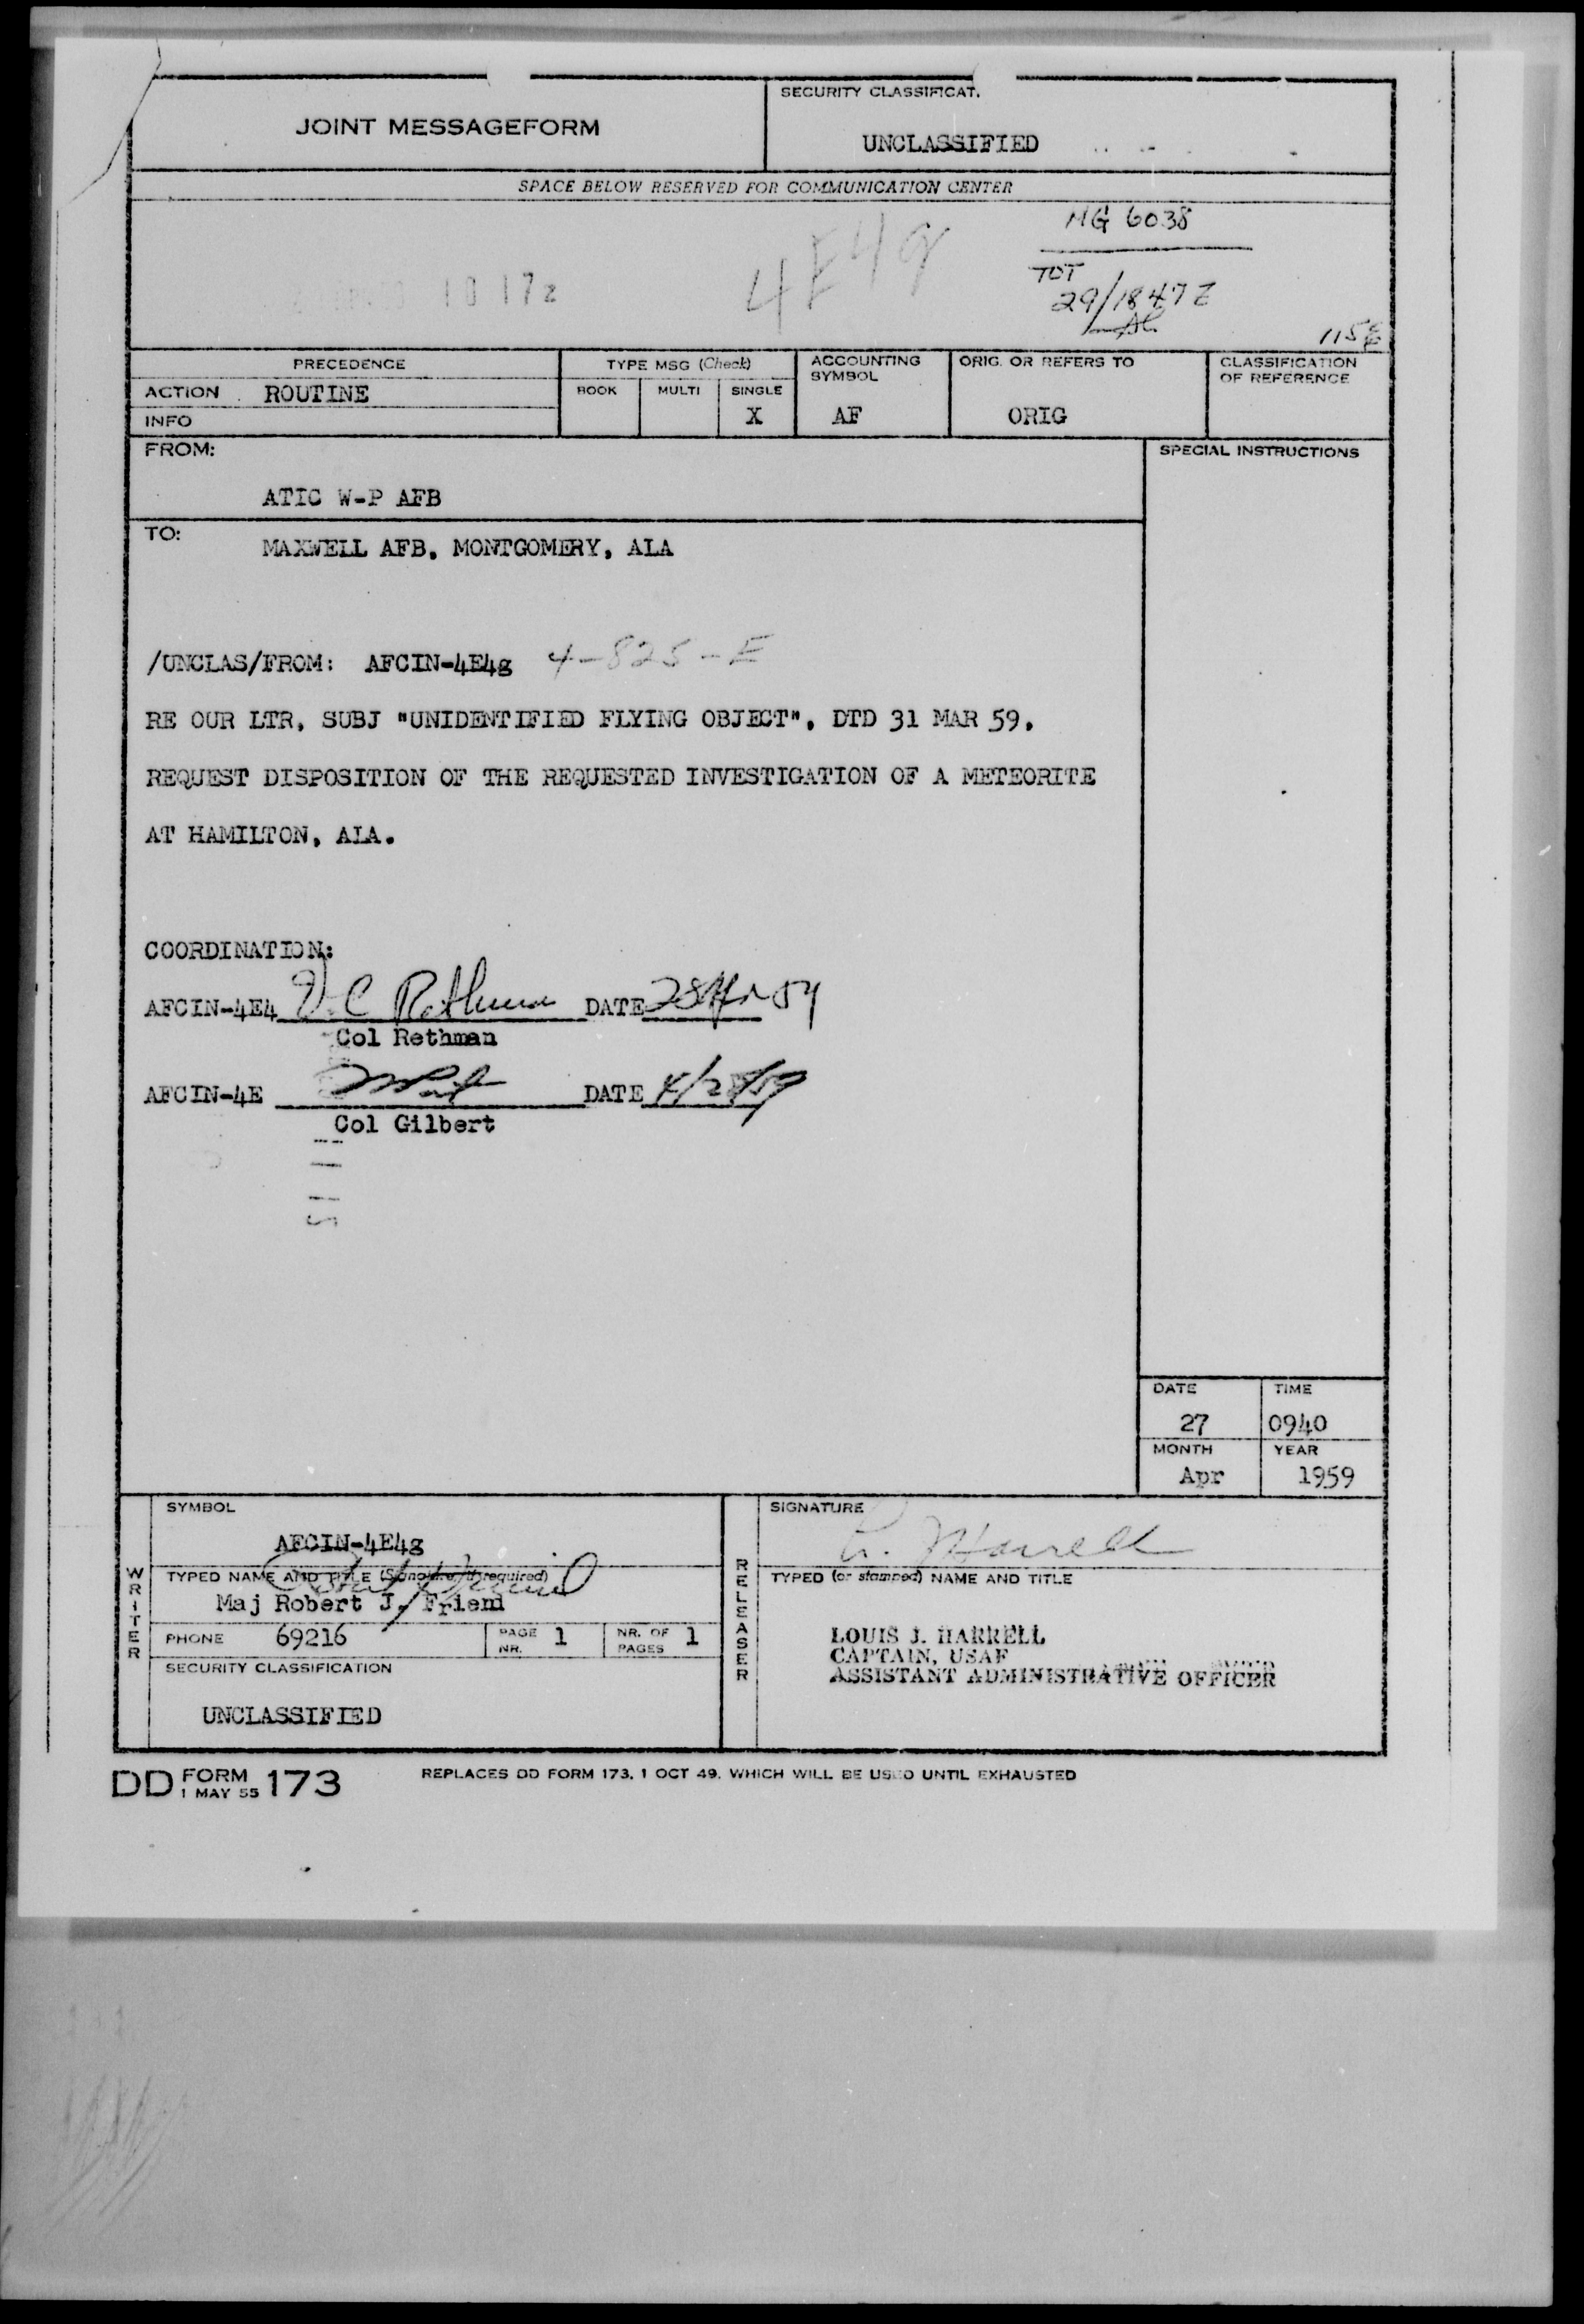 JOINT MESSAGEFORM
SECURITY CLASSIFICAT.
UNCLASSIFIED
SPACE BELOW RESERVED FOR COMMUNICATION CENTER
MG 6038
10 17z
4E4g
TOT
29/1847Z
115
PRECEDENCE
ACTION ROUTINE
INFO
TYPE MSG (Check)
BOOK MULTI SINGLE
X
ACCOUNTING
SYMBOL
AF
ORIG. OR REFERS TO
ORIG
CLASSIFICATION
OF REFERENCE
FROM:
ATIC W-P AFB
SPECIAL INSTRUCTIONS
TO:
MAXWELL AFB, MONTGOMERY, ALA
/UNCLAS/FROM: AFCIN-4E4g 4-825-E
RE OUR LTR, SUBJ "UNIDENTIFIED FLYING OBJECT", DTD 31 MAR 59,
REQUEST DISPOSITION OF THE REQUESTED INVESTIGATION OF A METEORITE
AT HAMILTON, ALA.
COORDINATION:
AFCIN-4E4 DATE 28 Apr 59
Col Rethman
AFCIN-4E DATE 4/28/59
Col Gilbert
DATE TIME
27 0940
MONTH YEAR
Apr 1959
WRITER
SYMBOL
AFCIN-4E4g
TYPED NAME AND TITLE (Signature, if required)
Maj Robert J. Friend
PHONE 69216
PAGE NR. 1
NR. OF PAGES 1
SECURITY CLASSIFICATION
UNCLASSIFIED
RELEASER
SIGNATURE
L. J. Harrell
TYPED (or stamped) NAME AND TITLE
LOUIS J. HARRELL
CAPTAIN, USAF
ASSISTANT ADMINISTRATIVE OFFICER
DD FORM 1 MAY 55 173
REPLACES DD FORM 173, 1 OCT 49, WHICH WILL BE USED UNTIL EXHAUSTED